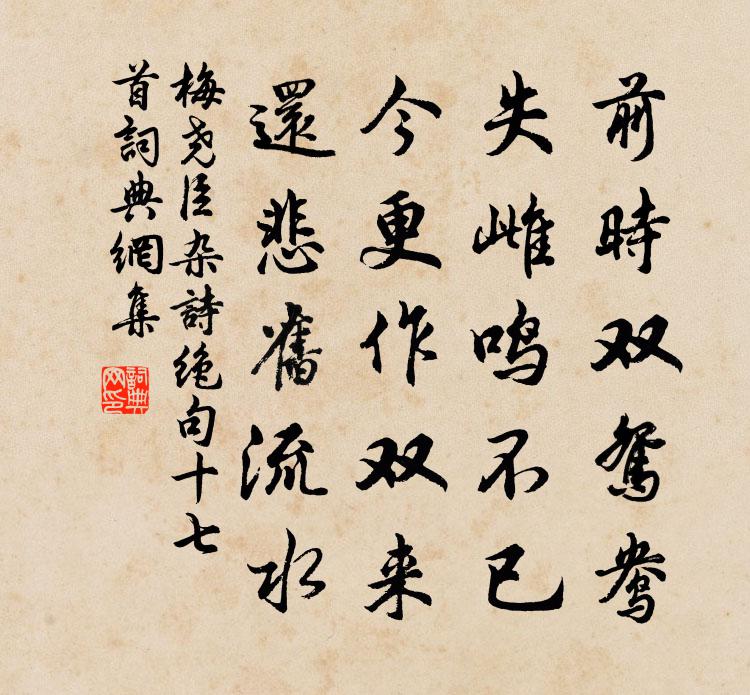 前時双鸳鸯
失雌鸣不已
今更作双来
還悲舊流水
梅尧臣杂詩绝句十七
首詞典網集
詞典网印